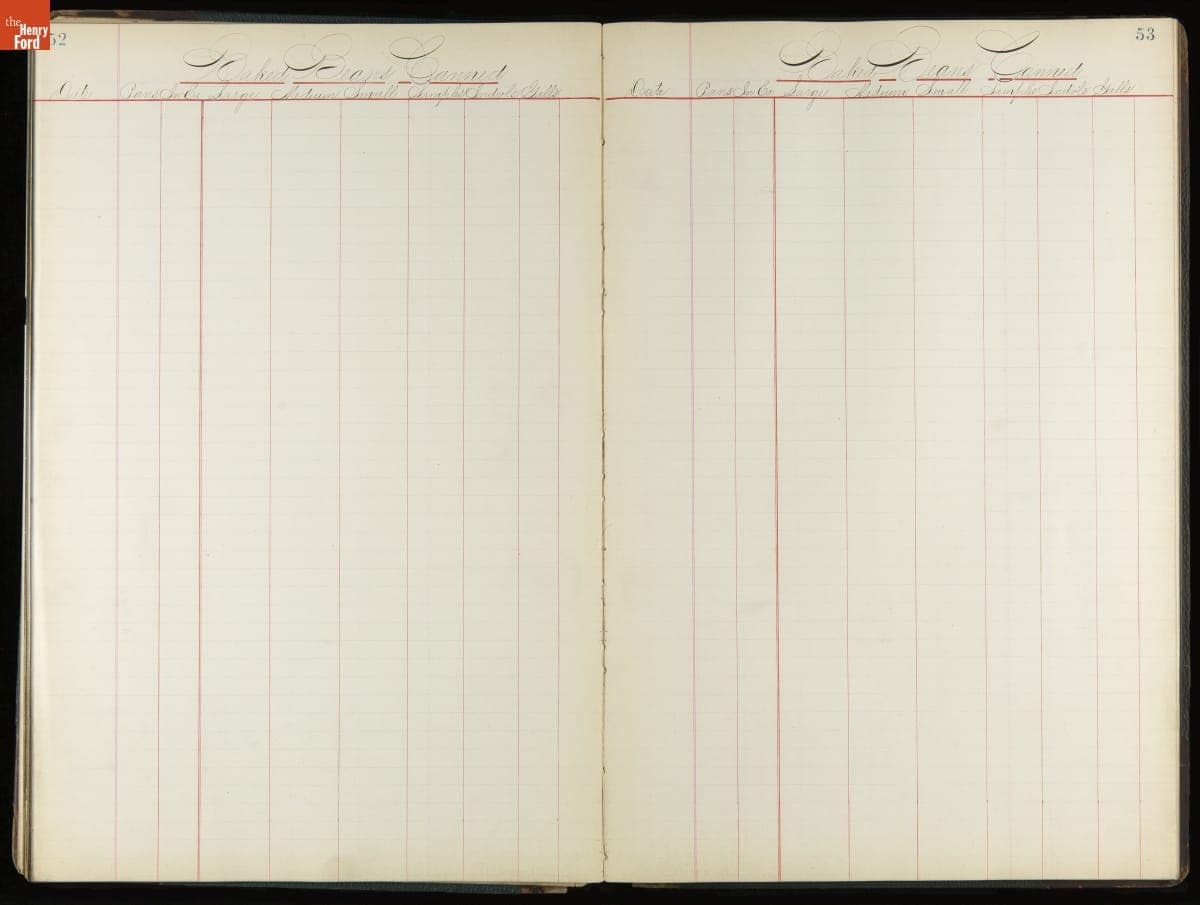 the
Henry
Ford
52
Baked Beans Canned
Date Pans In Ea Large Medium Small Simple Indols Gills
53
Baked Beans Canned
Date Pans In Ea Large Medium Small Simple Indols Gills